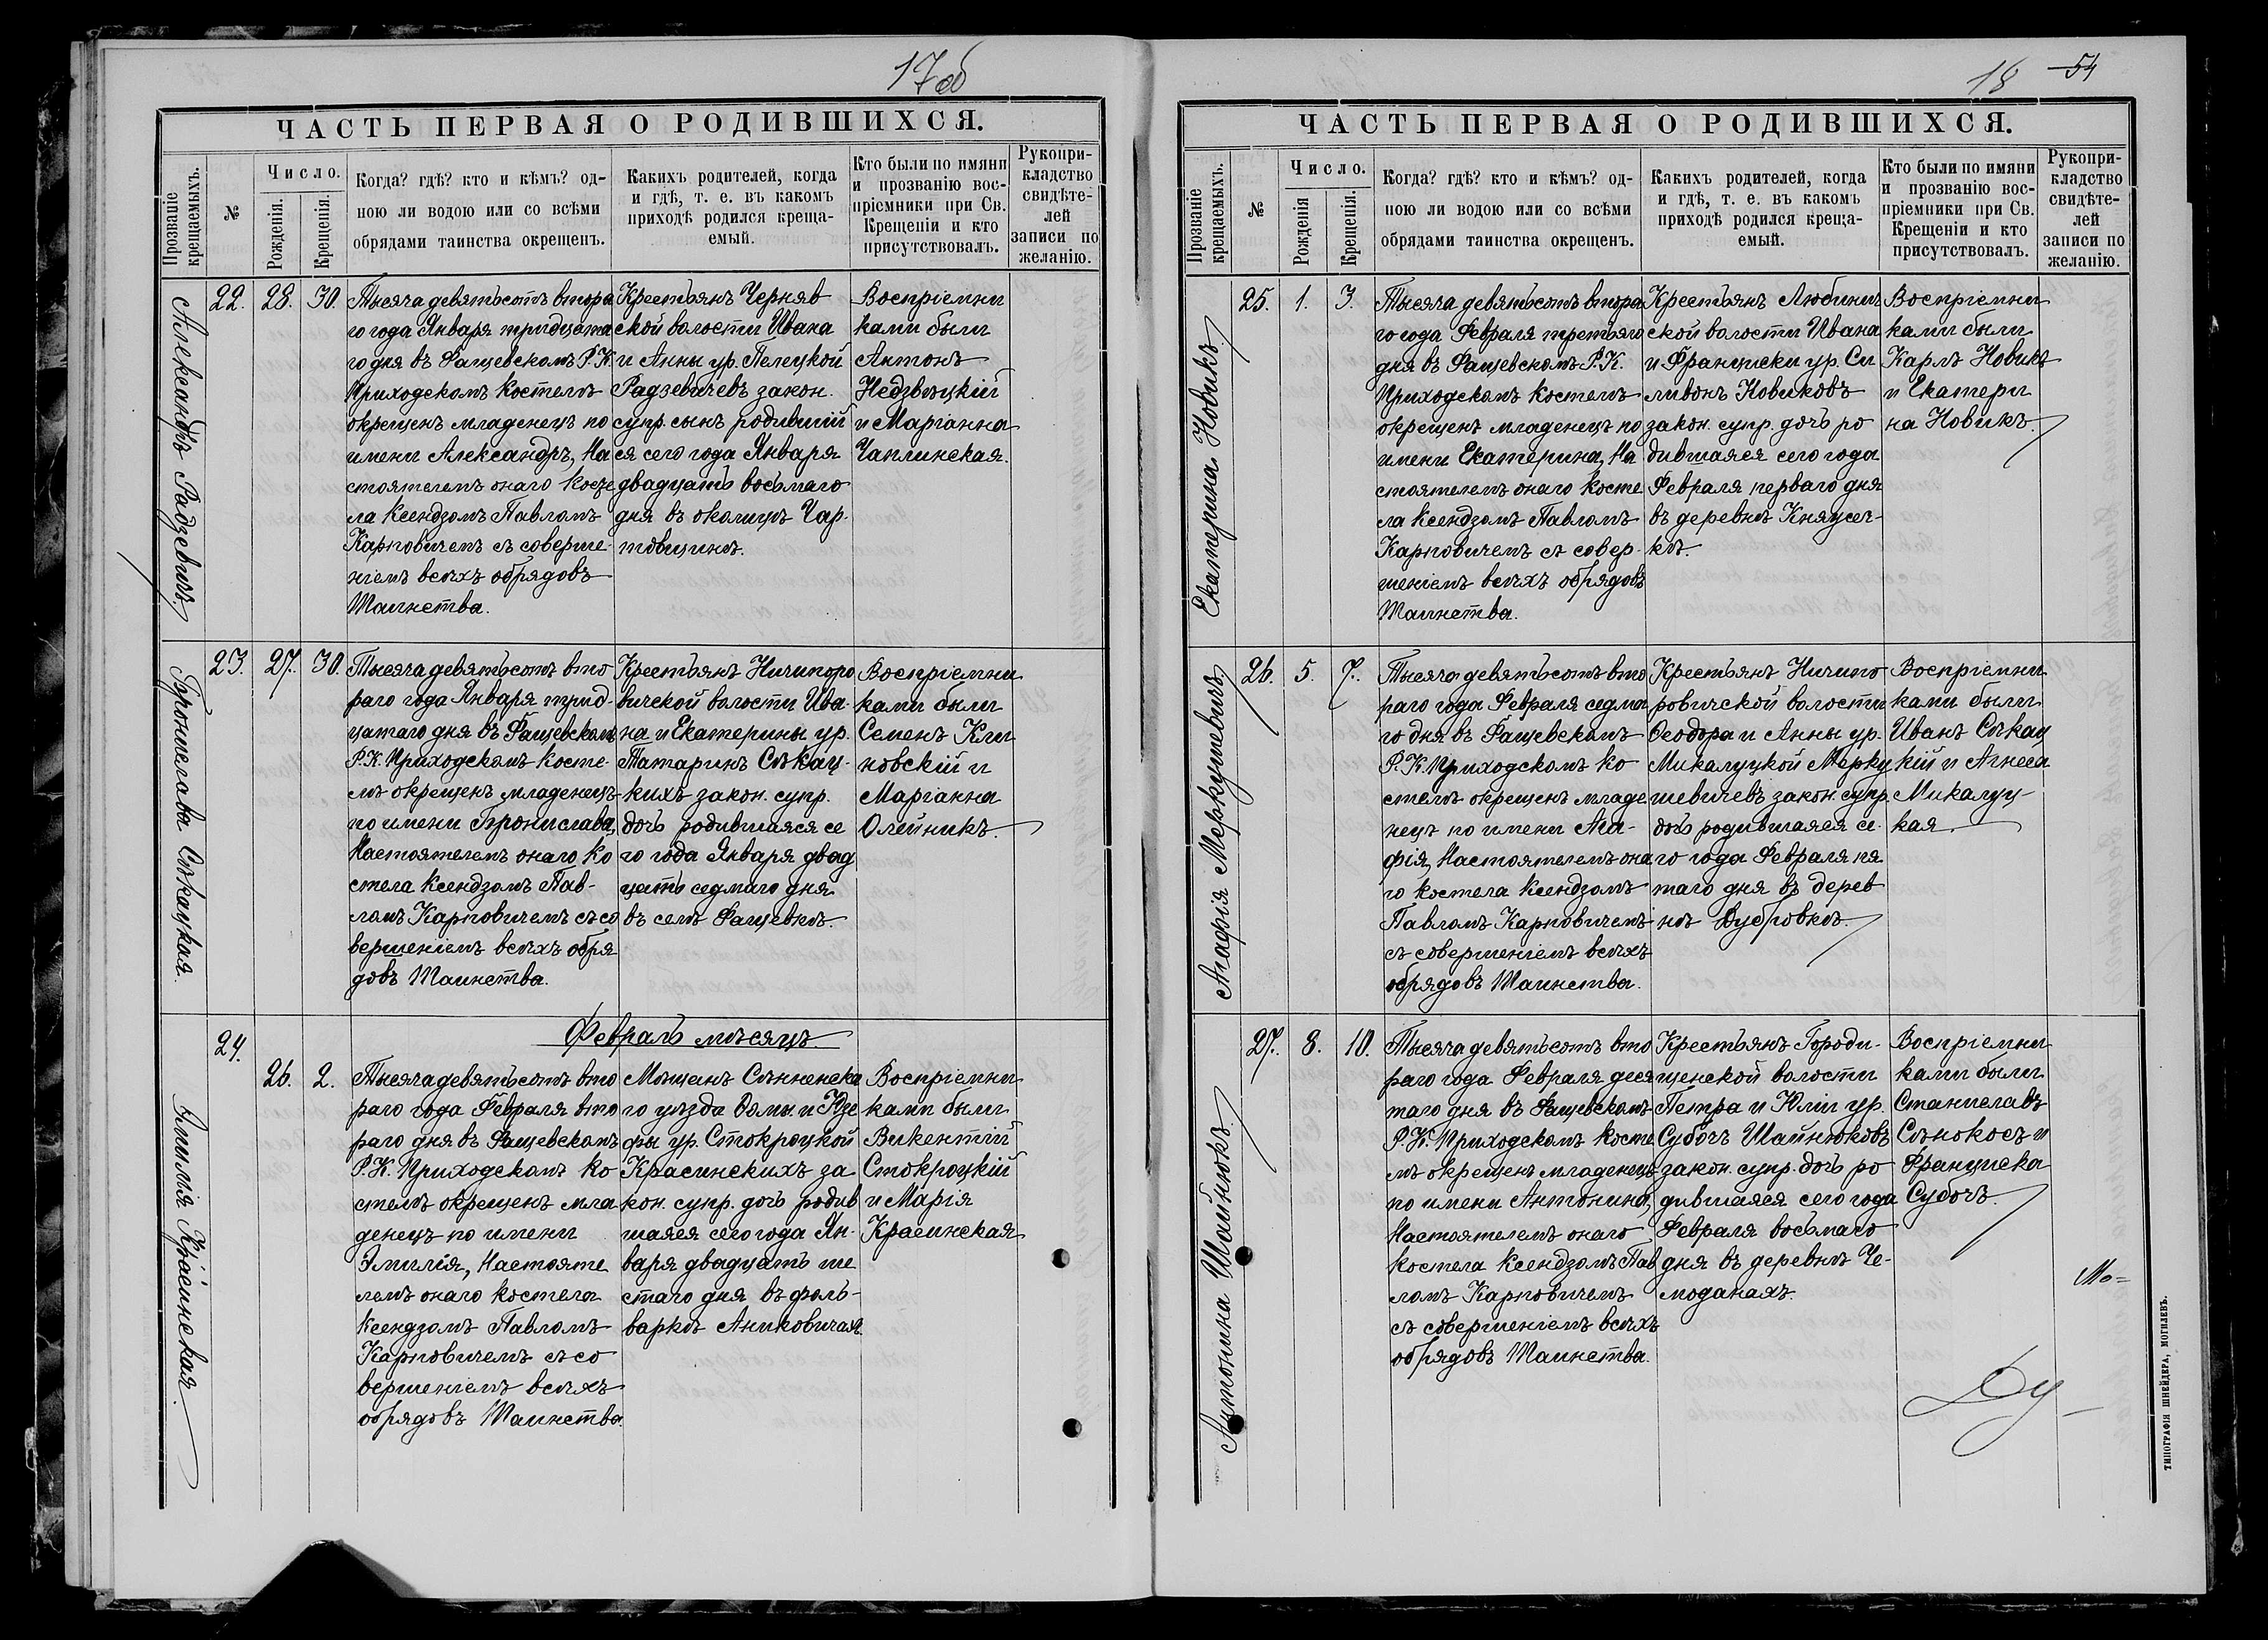 17об
ЧАСТЬ ПЕРВАЯ О РОДИВШИХСЯ.
Прозваніе крещаемыхъ.
№
Число.
Рожденія.
Крещенія.
Когда? гдѣ? кто и кѣмъ? од-
ною ли водою или со всѣми
обрядами таинства окрещенъ.
Какихъ родителей, когда
и гдѣ, т. е. въ какомъ
приходѣ родился креща-
емый.
Кто были по имяни
и прозванію вос-
пріемники при Св.
Крещеніи и кто
присутствовалъ.
Рукопри-
кладство
свидѣте-
лей
записи по
желанію.
Александръ Радзевичъ
22. 28. 30.
Тысяча девятьсотъ второ
го года Января тридцата
го дня въ Фащевскомъ Р.К.
Приходскомъ Костелѣ
окрещенъ младенецъ по
имени Александръ, На
стоятелемъ онаго Косте
ла Ксендзомъ Павломъ
Карповичемъ съ соверше-
ніемъ всѣхъ обрядовъ
Таинства.
Крестьянъ Черняв
ской волости Ивана
и Анны ур. Пелецкой
Радзевичевъ закон.
супр. сынъ родивший
ся сего года Января
двадцать восьмаго
дня въ околицѣ Чар-
товщинѣ.
Воспріемни
ками были
Антонъ
Недзвѣцкій
и Маріанна
Чаплинская.
Бронислава Сѣкацкая.
23. 27. 30.
Тысяча девятьсотъ вто
раго года Января трид-
цатаго дня въ Фащевскомъ
Р.К. Приходскомъ Косте-
лѣ окрещенъ младенецъ
по имени Бронислава,
Настоятелемъ онаго Ко
стела Ксендзомъ Пав-
ломъ Карповичемъ съ со
вершеніемъ всѣхъ обря
довъ Таинства.
Крестьянъ Ничипоро
вичской волости Ива-
на и Екатерины ур.
Татаринъ Сѣкац-
кихъ закон. супр.
дочь родившаяся се
го года Января двад
цать седмаго дня
въ селѣ Фащевкѣ.
Воспріемни
ками были
Семенъ Кли
новскій и
Маріанна
Олейникъ.
Февраль мѣсяцъ.
Эмилія Красинская.
24. 26. 2.
Тысяча девятьсотъ вто
раго года Февраля вто
раго дня въ Фащевскомъ
Р.К. Приходскомъ Ко
стелѣ окрещенъ мла
денецъ по имени
Эмилія, Настояте
лемъ онаго Костела
Ксендзомъ Павломъ
Карповичемъ съ со
вершеніемъ всѣхъ
обрядовъ Таинства.
Мѣщанъ Сѣнненска
го уѣзда Ѳомы и Юзе
фы ур. Стокроцкой
Красинскихъ за
кон. супр. дочь родив
шаяся сего года Ян-
варя двадцать ше
стаго дня въ фоль-
варкѣ Аниковичахъ.
Воспріемни
ками были
Викентій
Стокроцкій
и Марія
Красинская
18 54
ЧАСТЬ ПЕРВАЯ О РОДИВШИХСЯ.
Прозваніе крещаемыхъ.
№
Число.
Рожденія
Крещенія.
Когда? гдѣ? кто и кѣмъ? од-
ною ли водою или со всѣми
обрядами таинства окрещенъ.
Какихъ родителей, когда
и гдѣ, т. е. въ какомъ
приходѣ родился креща-
емый.
Кто были по имяни
и прозванію вос-
пріемники при Св.
Крещеніи и кто
присутствовалъ.
Рукопри-
кладство
свидѣте-
лей
записи по
желанію.
Екатерина Новикъ
25. 1. 3.
Тысяча девятьсотъ второ
го года Февраля третьяго
дня въ Фащевскомъ Р.К.
Приходскомъ Костелѣ
окрещенъ младенецъ по
имени Екатерина, На
стоятелемъ онаго Косте
ла Ксендзомъ Павломъ
Карповичемъ съ совер-
шеніемъ всѣхъ обрядовъ
Таинства.
Крестьянъ Любинич
ской волости Ивана
и Франциски ур. Си
ливонъ Новиковъ
закон. супр. дочь ро
дившаяся сего года
Февраля перваго дня
въ деревнѣ
кѣ.
Воспріемни
ками были
Карлъ Новикъ
и Екатери
на Новикъ.
Агафія Меркушевичъ
26. 5. 7.
Тысяча девятьсотъ вто
раго года Февраля седма
го дня въ Фащевскомъ
Р.К. Приходскомъ Ко
стелѣ окрещенъ младе
нецъ по имени Ага-
фія, Настоятелемъ она
го Костела Ксендзомъ
Павломъ Карповичемъ
съ совершеніемъ всѣхъ
обрядовъ Таинства.
Крестьянъ Ничипо
ровичской волости
Ѳеодора и Анны ур.
Микалуцкой Мерку
шевичевъ закон. супр.
дочь родившаяся се-
го года Февраля пя
таго дня въ дерев
нѣ Дубровкѣ.
Воспріемни
ками были
Иванъ Сѣкац
кій и Агнеса
Микалуц-
кая.
Антонина Шайнюкъ
27. 8. 10.
Тысяча девятьсотъ вто
раго года Февраля деся
таго дня въ Фащевскомъ
Р.К. Приходскомъ Косте
лѣ окрещенъ младенецъ
по имени Антонина,
Настоятелемъ онаго
Костела Ксендзомъ Пав
ломъ Карповичемъ
съ совершеніемъ всѣхъ
обрядовъ Таинства.
Крестьянъ Городи-
щенской волости
Петра и Юліи ур.
Субочъ Шайнюковъ
закон. супр. дочь ро
дившаяся сего года
Февраля восьмаго
дня въ деревнѣ Че-
моданахъ.
Воспріемни
ками были
Станиславъ
Сѣнокосъ и
Франциска
Субочъ.
Мо=
Ду-
ТИПОГРАФІЯ ШНЕЙДЕРА, МОГИЛЕВЪ.